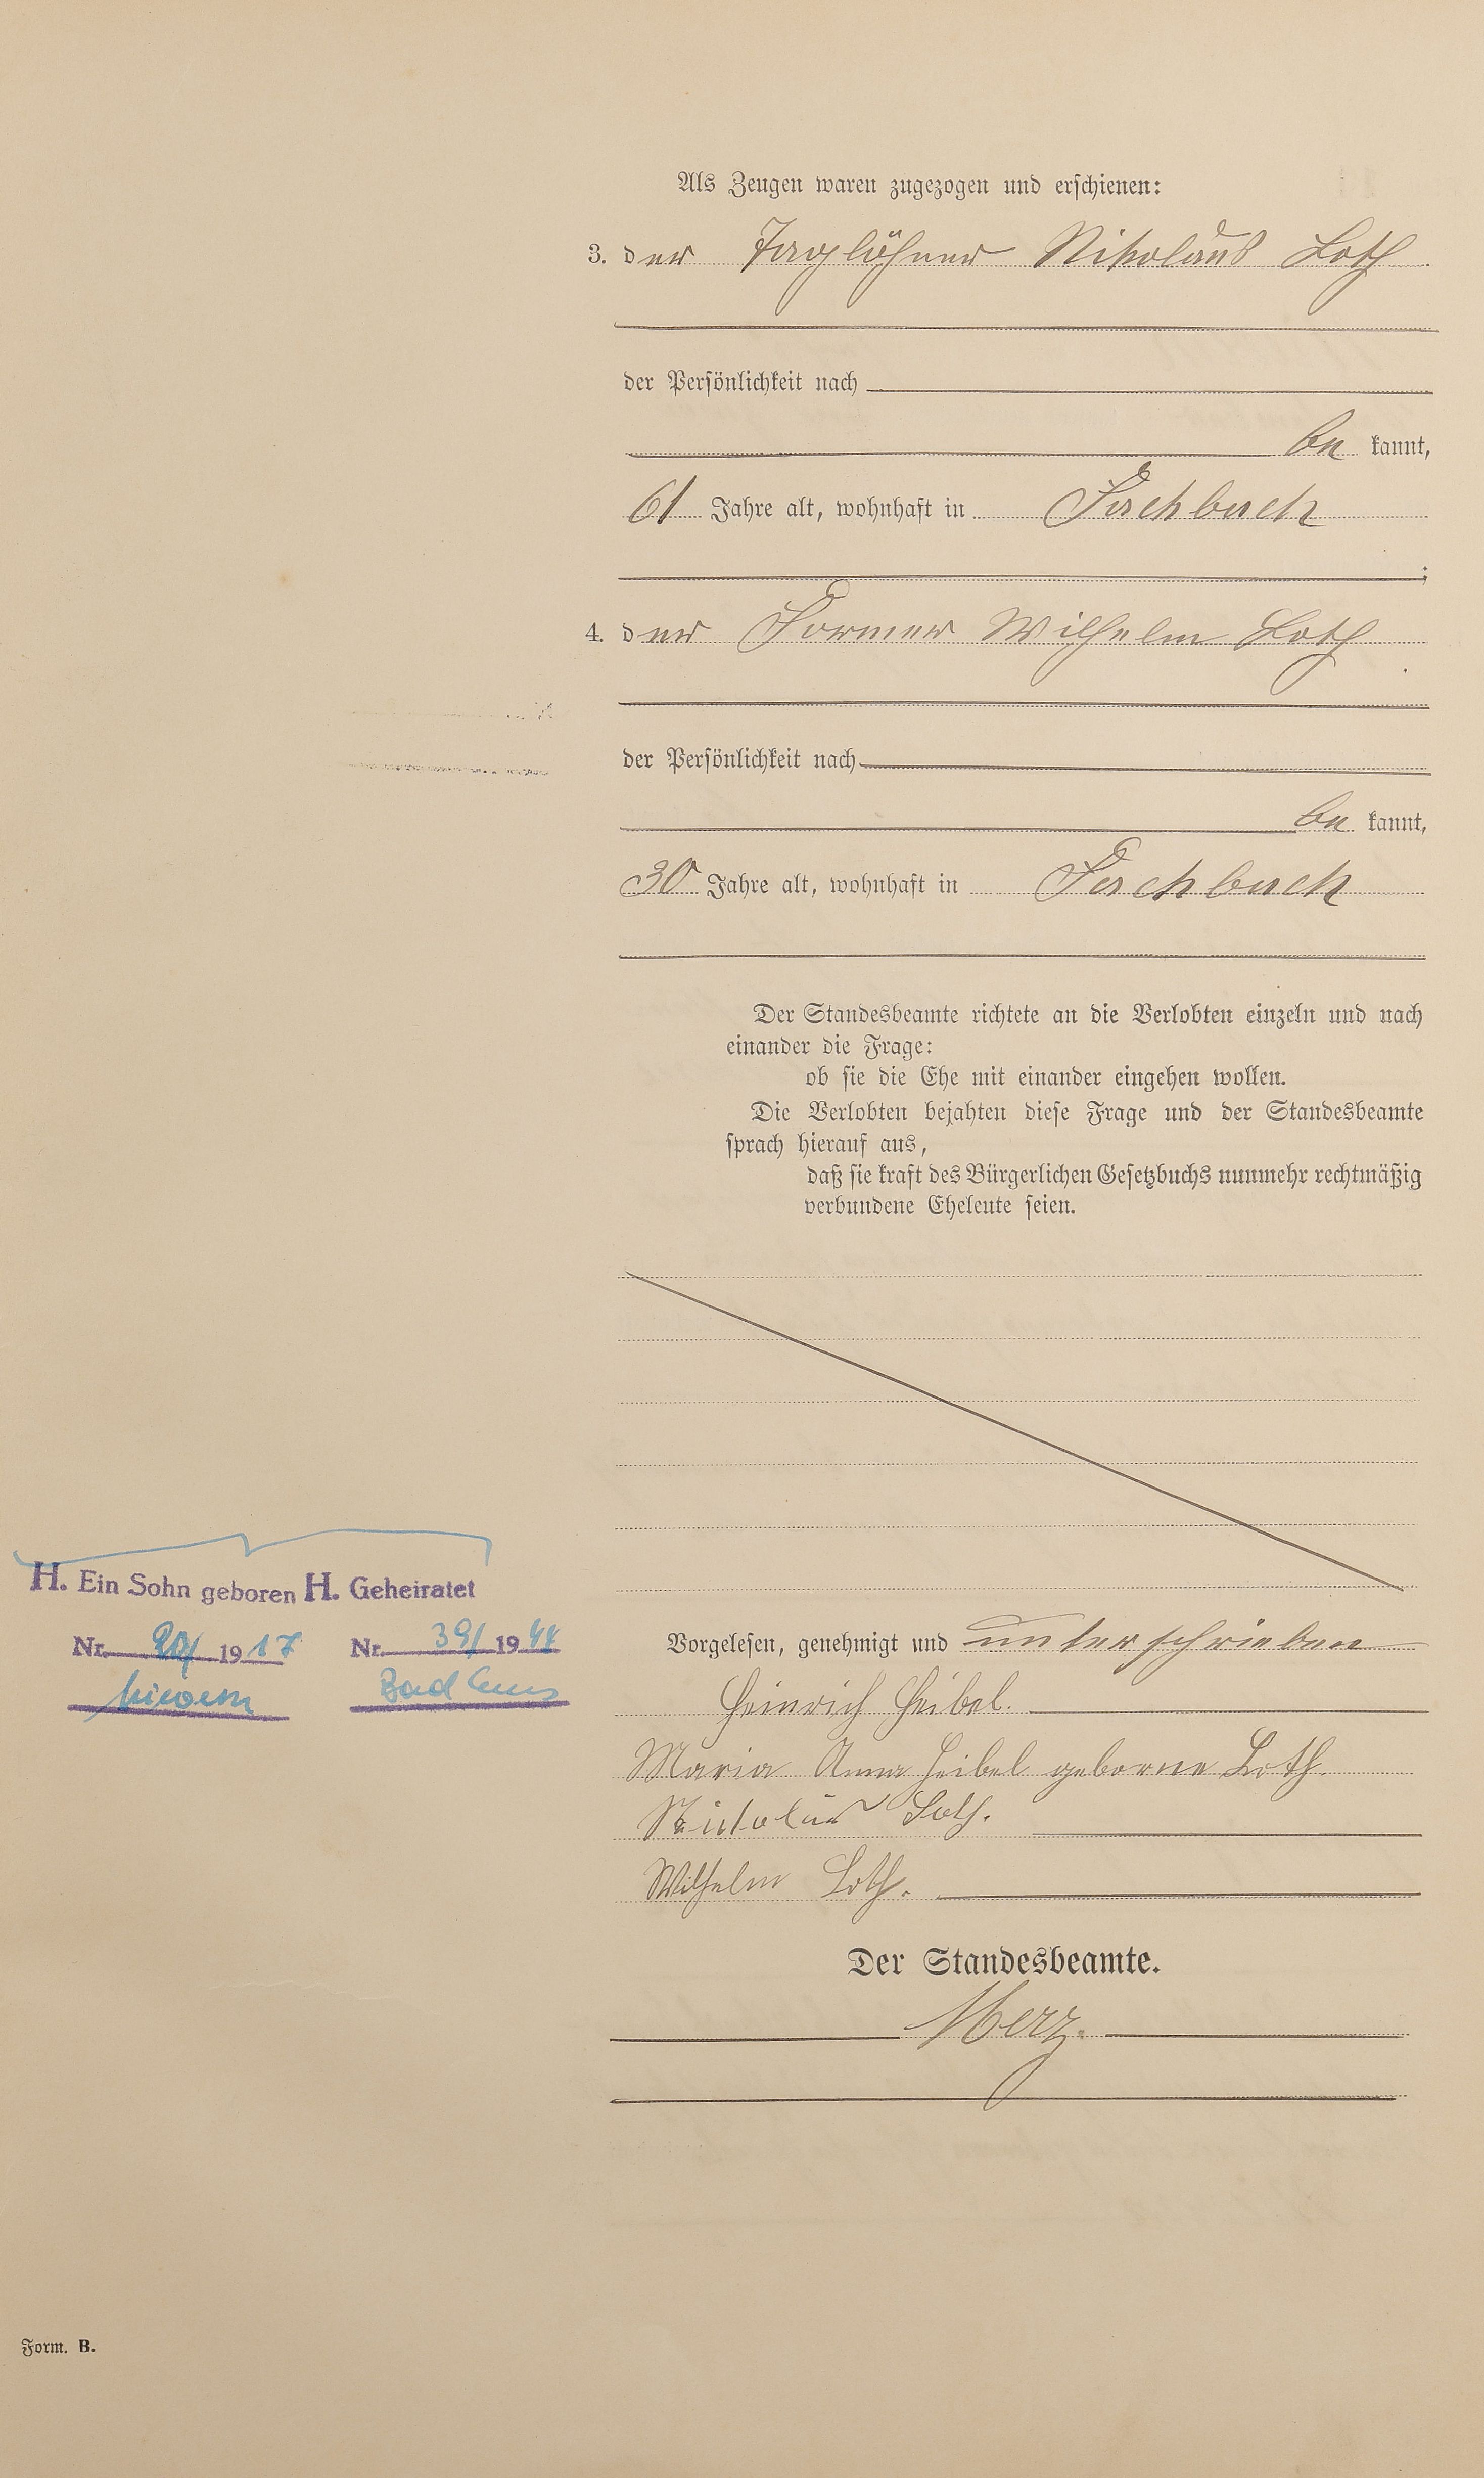 Als Zeugen waren zugezogen und erschienen:
3. der Taglöhner Nikolaus Loth
der Persönlichkeit nach
be kannt,
61 Jahre alt, wohnhaft in Fachbach
;
4. der Former Wilhelm Loth
der Persönlichkeit nach
be kannt,
30 Jahre alt, wohnhaft in Fachbach
Der Standesbeamte richtete an die Verlobten einzeln und nach
einander die Frage:
ob sie die Ehe mit einander eingehen wollen.
Die Verlobten bejahten diese Frage und der Standesbeamte
sprach hierauf aus,
daß sie kraft des Bürgerlichen Gesetzbuchs nunmehr rechtmäßig
verbundene Eheleute seien.
H. Ein Sohn geboren H. Geheiratet
Nr. 1917 Nr. 39/1944
Nievern Bad Ems
Vorgelesen, genehmigt und unterschrieben
Heinrich Heibel.
Maria Anna Heibel geborne Loth
Nikolaus Loth.
Wilhelm Loth.
Der Standesbeamte.
Merz.
Form. B.